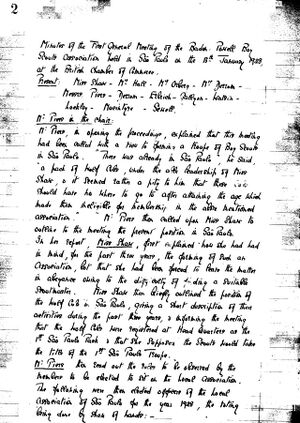 2
Minutes of the First General Meeting of the Baden Powell Boy
Scouts Association held in São Paulo on the 18th January 1928,
at the British Chamber of Commerce.
Present: Miss Shaw - Mr Hall -
Messrs Piers -
Mr Piers in the chair.
Mr Piers, in opening the proceedings, explained that this meeting
had been called with a view to opening a troop of Boy Scouts
in São Paulo. "There was already in São Paulo", he said,
"a pack of Wolf Cubs, under the able leadership of Miss
Shaw, & it seemed rather a pity to him that these
should have no where to go to after attaining the age which
made them ineligible for membership in the above mentioned
association." Mr Piers then called upon Miss Shaw to
outline to the meeting the present position in São Paulo.
In her report, Miss Shaw, first explained how she had had
in mind, for the past three years, the forming of such an
Association, but that she had been forced to leave the matter
in abeyance owing to the difficulty of finding a suitable
Scoutmaster. Miss Shaw then briefly outlined the position of
the Wolf Cubs in São Paulo, giving a short description of their
activities during the past three years, & informing the meeting
that the Wolf Cubs were registered at Head Quarters as the
1st São Paulo Pack & that she supposed the Scouts would take
the title of the 1st São Paulo Troop.
Mr Piers then read out the rules to be observed by the
members to be elected to sit on the Local Association.
The following were then elected officers of the Local
Association of São Paulo for the year 1928, the voting
being done by show of hands:-